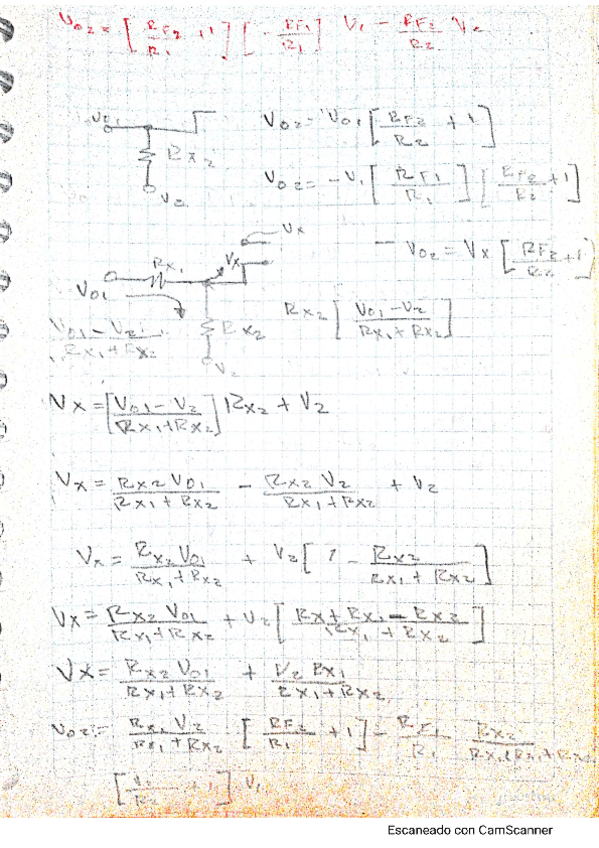 Vo2 = [RF2/R1 + 1] [-RF1/R1] V1 - RF2/R2 V2
Vo1
Rx2
V2
Vo2 = Vo1 [RF2/R2 + 1]
Vo2 = -V1 [RF1/R1] [RF2/R2 + 1]
Vx
Rx1
Vx
Vo1
- Vo2 = Vx [RF2/R2 + 1]
Vo1 - V2 / Rx1 + Rx2
Rx2
V2
Rx2 [Vo1 - V2 / Rx1 + Rx2]
Vx = [Vo1 - V2 / Rx1 + Rx2] Rx2 + V2
Vx = Rx2 Vo1 / Rx1 + Rx2 - Rx2 V2 / Rx1 + Rx2 + V2
Vx = Rx2 Vo1 / Rx1 + Rx2 + V2 [1 - Rx2 / Rx1 + Rx2]
Vx = Rx2 Vo1 / Rx1 + Rx2 + V2 [Rx + Rx1 - Rx2 / Rx1 + Rx2]
Vx = Rx2 Vo1 / Rx1 + Rx2 + V2 Rx1 / Rx1 + Rx2
Vo2 = Rx1 V2 / Rx1 + Rx2 [RF2/R1 + 1] - RF1/R1 Rx2
V1
Escaneado con CamScanner